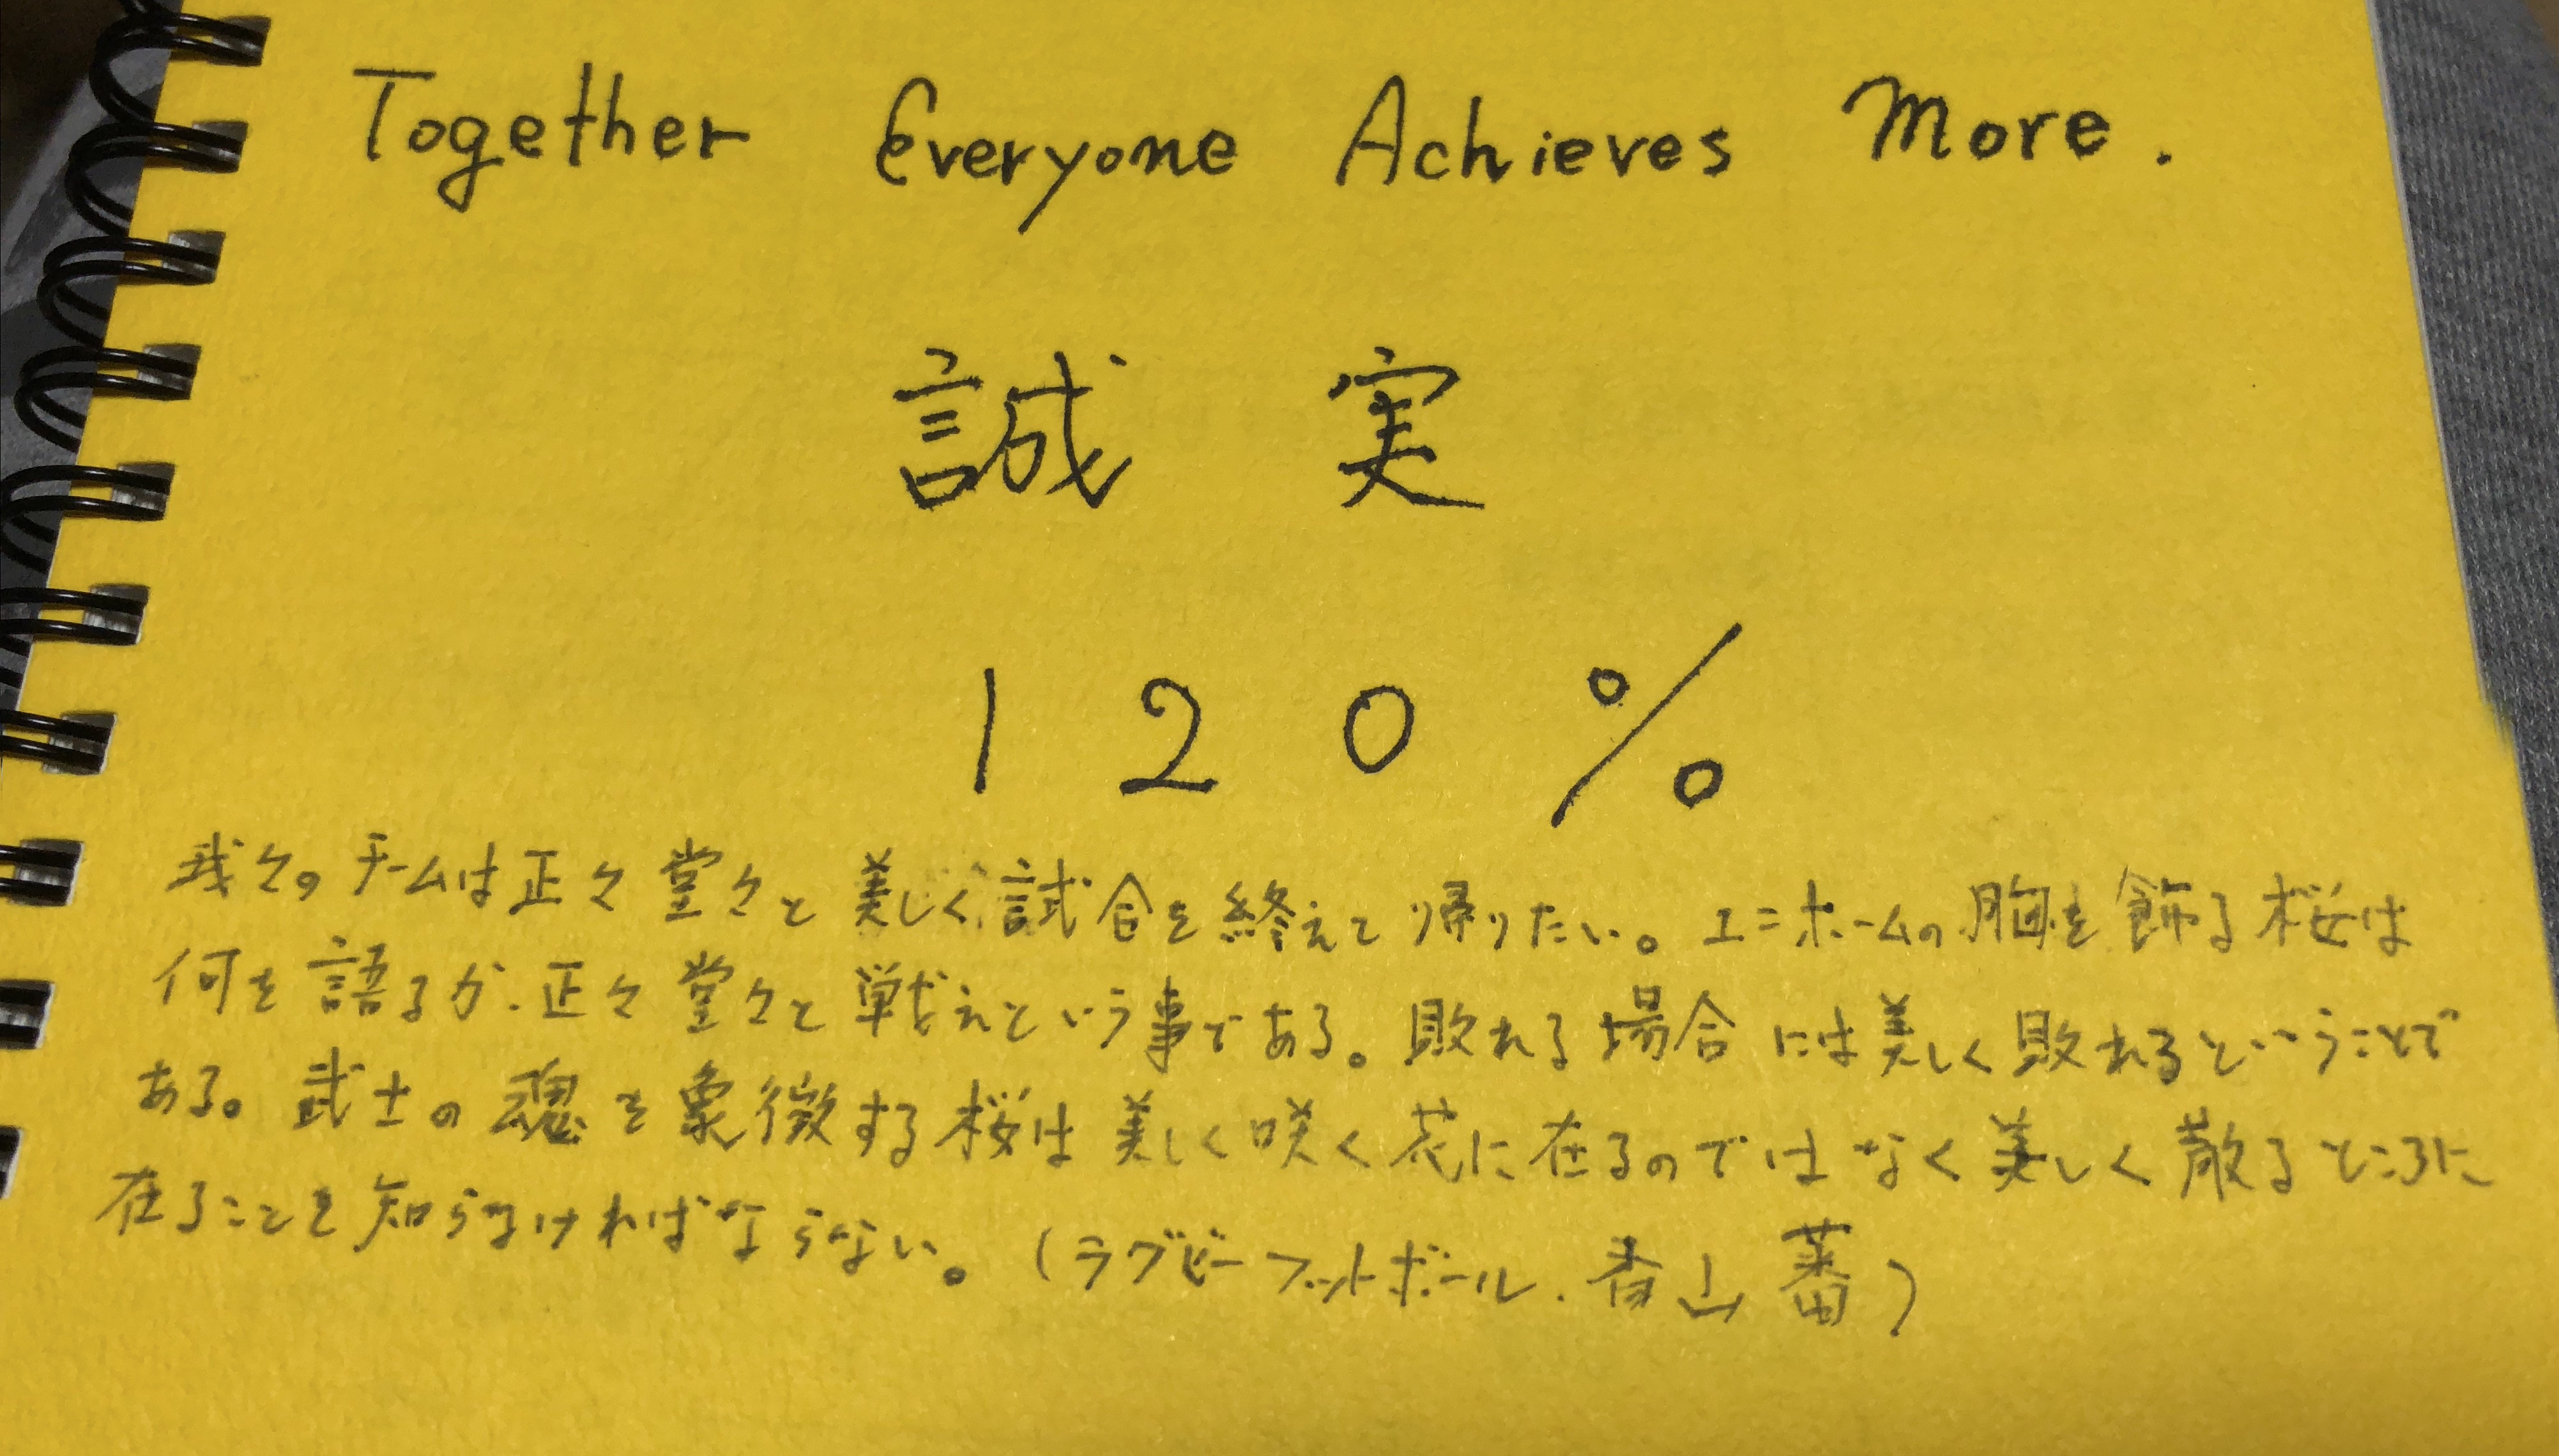 Together Everyone Achieves More.
誠実
120%
我々のチームは正々堂々と美しく試合を終えて帰りたい。ユニホームの胸を飾る桜は
何を語るか、正々堂々と戦えという事である。敗れる場合には美しく敗れるということで
ある。武士の魂を象徴する桜は美しく咲く花に在るのではなく美しく散るところに
在ることを知らなければならない。(ラグビーフットボール、香山蕃)